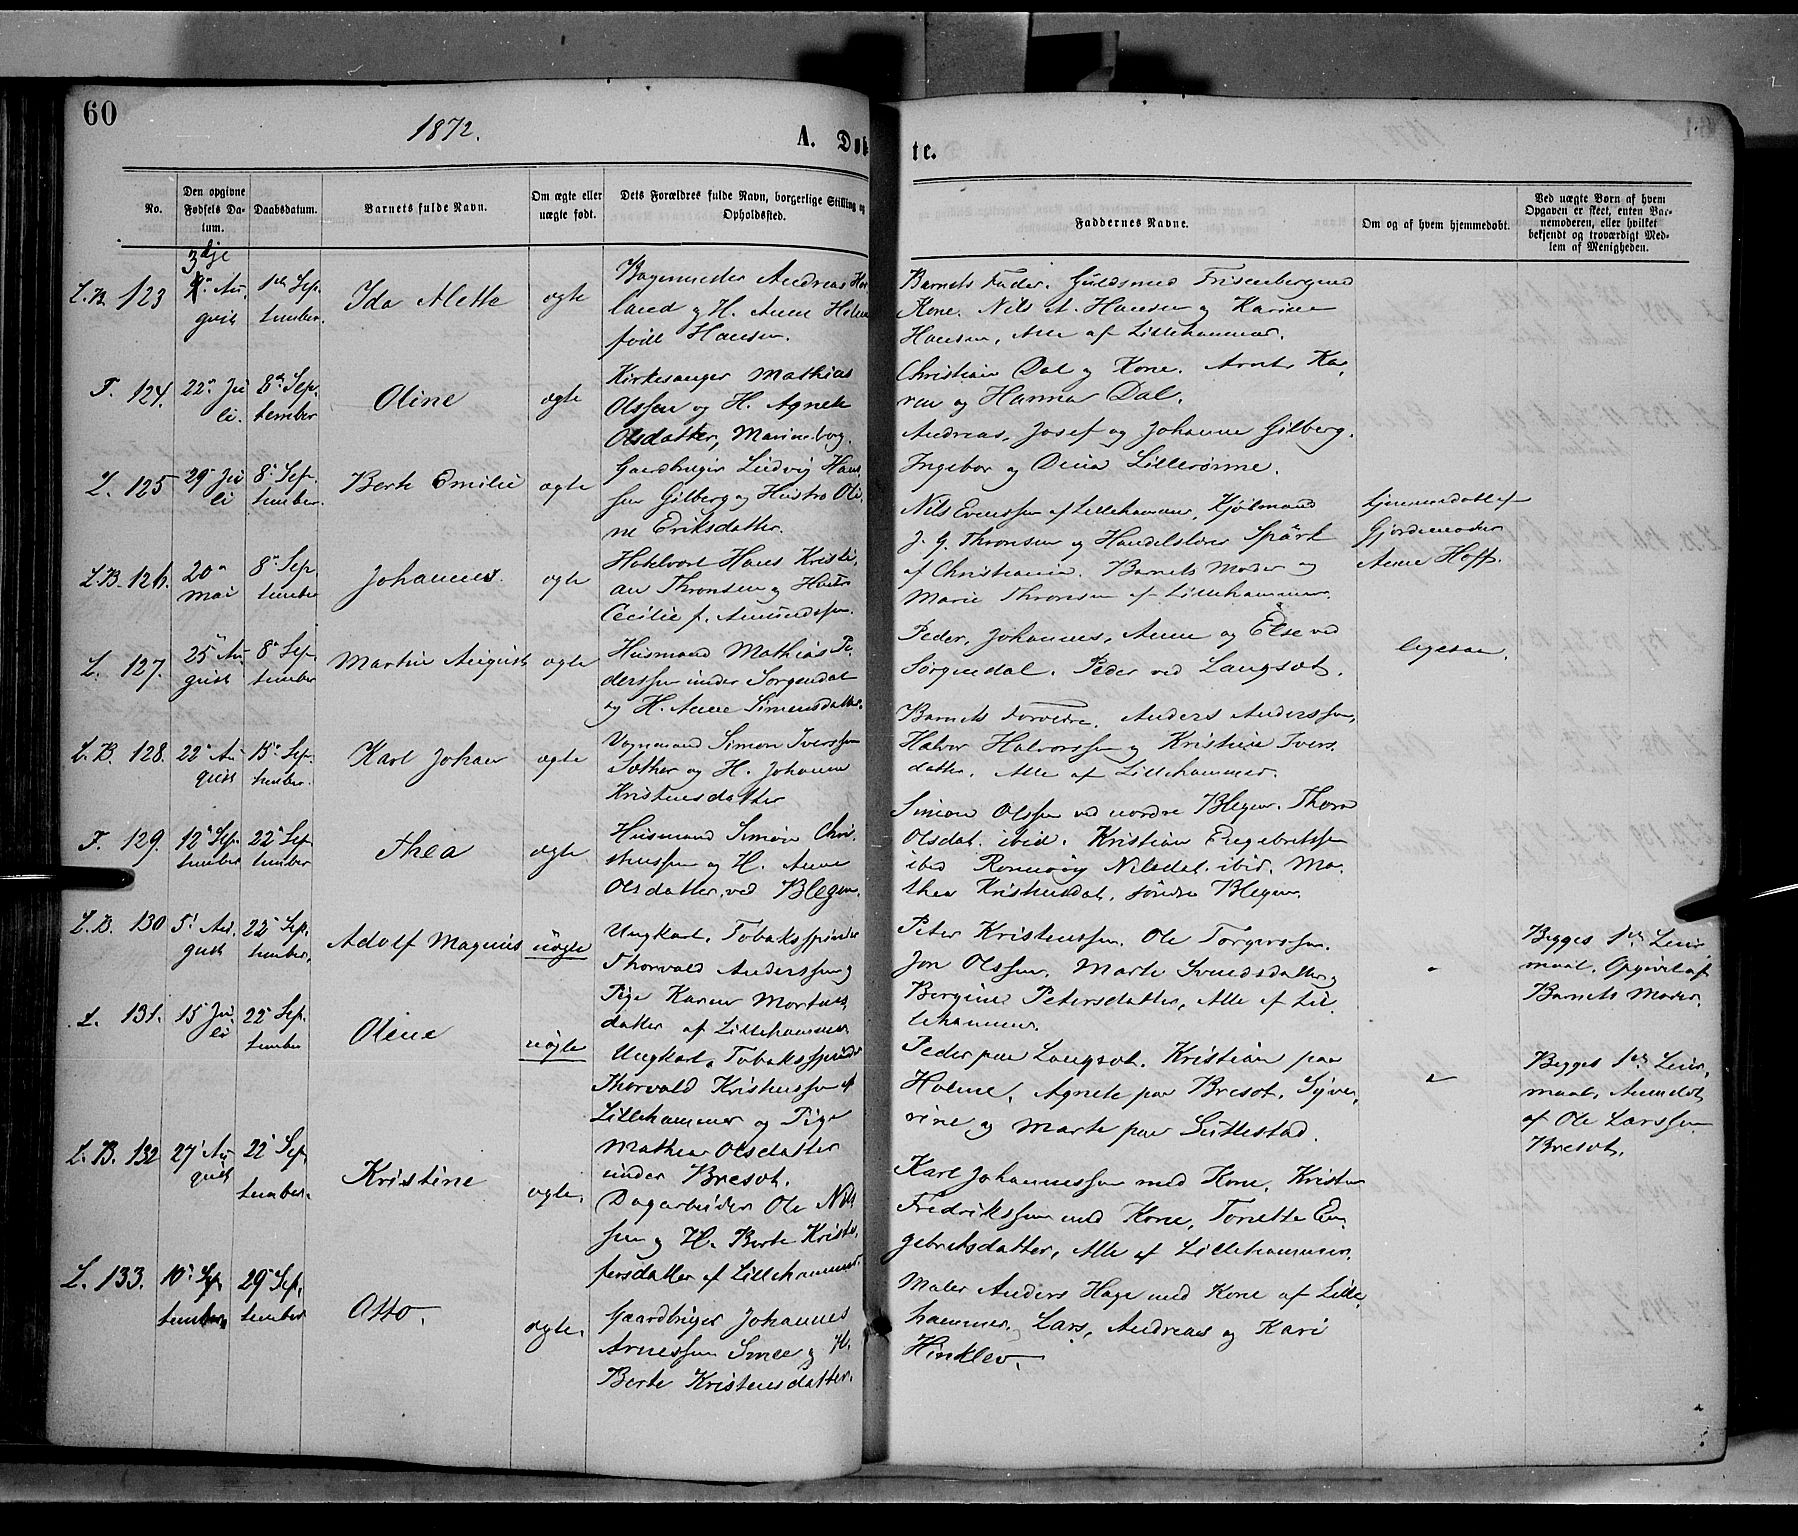 60
1872.
A. Døb
te.
No.
Den opgivne Fødsels Da-
tum.
Daabsdatum.
Barnets fulde Navn.
Om ægte eller
uægte født.
Dets Forældres fulde Navn, borgerlige Stilling og
Opholdssted.
Faddernes Navne.
Om og af hvem hjemmedøbt.
Ved uægte Børn af hvem
Opgaven er skeet, enten Bar-
nemoderen, eller hvilket
bekjendt og troværdigt Med-
lem af Menigheden.
L.B. 123
3dje Au-
gust
1ste Sep-
tember.
Ida Alette
ægte
Bagermester Andreas
land og H. Anne
født Hansen.
Barnets Fader. Guldsmed Frisenberg med
Kone. Nils A. Hansen og Karine
Hansen, Alle af Lillehammer.
F. 124.
22 Ju
li.
8de Sep-
tember
Oline
ægte
Kirkesanger Mathias
Olssen og H. Agnete
Olsdatter,
Christian Dal og Kone. Arnt, Ka-
ren og Hanna Dal.
L. 125
29 Ju
li
8 Sep-
tember.
Berte Emilie
ægte
Gaardbruger Ludvig Han-
sen Gilberg og Hustro Oli-
ne Eriksdatter.
Andreas, Josef og Johanne Gilberg.
Ingebor og Dina Lillerønne.
L.B. 126.
20
Mai
8 Sep
tember
Johannes.
ægte
Hans Kristi-
an Thronsen og Hustro
Cecilie f. Amundssen.
Nils Evenssen af Lillehammer, Kjøbmand
J. G. Thronsen og Handelslærer
af Christiania. Barnets Moder og
Marie Thronsen af Lillehammer.
Hjemmedøbt af
Gjordemoder
Anne Hoff.
L. 127.
25 Au-
gust
8 Sep-
tember
Martin August
ægte
Husmand Mathias Pe-
derssen under Sørgendal
og H. Anne Simensdatter.
Peder, Johannes, Anne og Else ved
Sørgendal. Peder ved Langsvt.
ligesaa.
L.B. 128.
22 Au
gust
15 Sep-
tember.
Karl Johan
ægte
Vognmand Simon Iverssen
Sæther og H. Johanne
Kristensdatter
Barnets Forældre. Anders Anderssen,
Halvor Halvorssen og Kristine Ivers-
datter. Alle af Lillehammer.
F. 129.
12 Sep-
tember
22 Sep
tember
Thea
ægte
Husmand Simon Chri-
stenssen og H. Anne
Olsdatter, ved Blegen.
Simon Olssen ved nordre Blegen. Thora
Olsdat. ibid. Kristian Engebretssen
ibid Ronnaug Nilsdat. ibid. Ma-
thea Kristensdat. søndre Blegen.
L.B. 130
5 Au-
gust
22 Sep-
tember,
Adolf Magnus
uægte
Ungkarl, Tobaksspinder
Thorvald Anderssen og
Pige Karen Mortens-
datter af Lillehammer
Peter Kristenssen. Ole Torgerssen.
Jon Olssen, Marte Svendsdatter og
Bergine Petersdatter, Alle af Lil-
lehammer.
Begges 1ste Leier-
maal. Opgivet af
Barnets Moder.
L. 131.
15 Ju-
li
22 Sep.
tember
Oline
uægte
Ungkarl, Tobaksspinder
Thorvald Kristenssen af
Lillehammer og Pige
Mathea Olsdatter
under Bresvt.
Peder paa Langsvt. Kristian paa
Holme, Agnete paa Bresvt, Syve-
rine og Marte paa Suttestad.
Begges 1ste Leier-
maal, Anmeldt
af Ole Larssen
Bresvt.
L.B. 132
27 Au
gust
22 Sep.
tember.
Kristine
ægte.
Dagarbeider Ole Nils-
sen og H. Berte Kristo-
fersdatter af Lillehammer.
Karl Johannessen med Kone, Kristen
Fredrikssen med Kone, Tonette En-
gebretsdatter, Alle af Lillehammer.
L. 133.
10 Sep-
tember,
29 Sep-
tember
Otto.
ægte.
Gaardbruger Johannes
Arnessen Smee og H.
Berte Kristensdatter.
Maler Anders Hage med Kone af Lille-
hammer, Lars, Andreas og Kari
Hinklev.